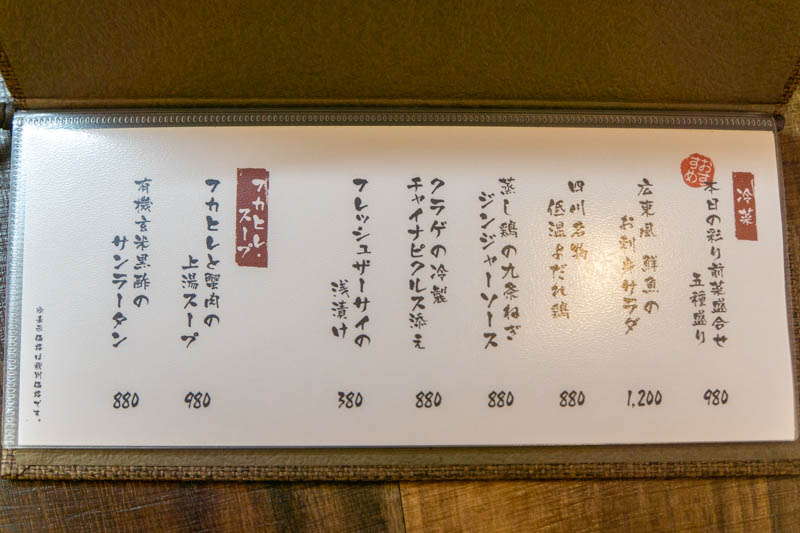 冷菜
おす
すめ
本日の彩り前菜盛合せ
五種盛り
980
広東風 鮮魚の
お刺身サラダ
1,200
四川名物
低温よだれ鶏
880
蒸し鶏の九条ねぎ
ジンジャーソース
880
クラゲの冷製
チャイナピクルス添え
880
フレッシュザーサイの
浅漬け
380
フカヒレ・
スープ
フカヒレと蟹肉の
上湯スープ
980
有機玄米黒酢の
サンラータン
880
※表示価格は税別価格です。